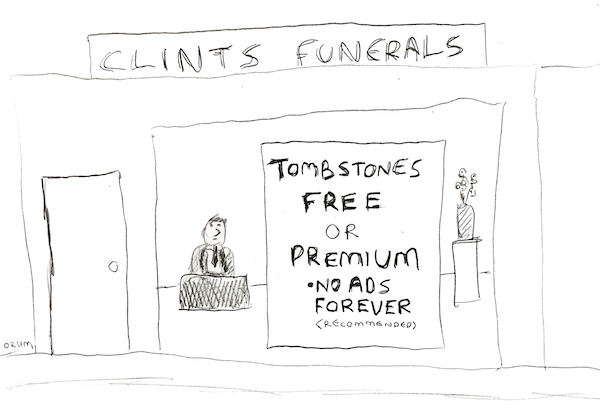 CLINTS FUNERALS
TOMBSTONES
FREE
OR
PREMIUM
•NO ADS
FOREVER
(RECOMMENDED)
ORUM